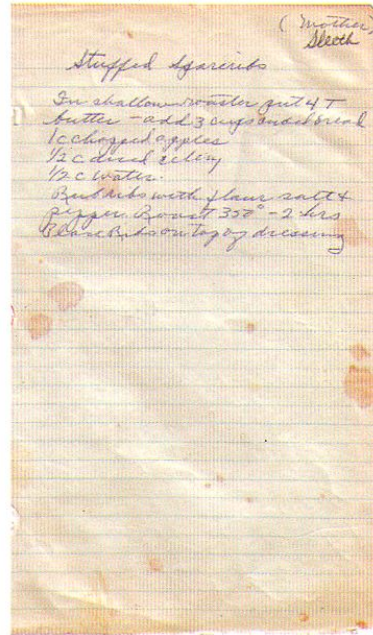 (Mother)
Sleoth
Stuffed Spareribs
In shallow roaster put 4 T
butter - add 3 cups cubed bread
1 c chopped apples
1/2 c diced celery
1/2 c water.
Rub ribs with flour salt &
pepper. Roast 350° - 2 hrs
Place Ribs on top of dressing